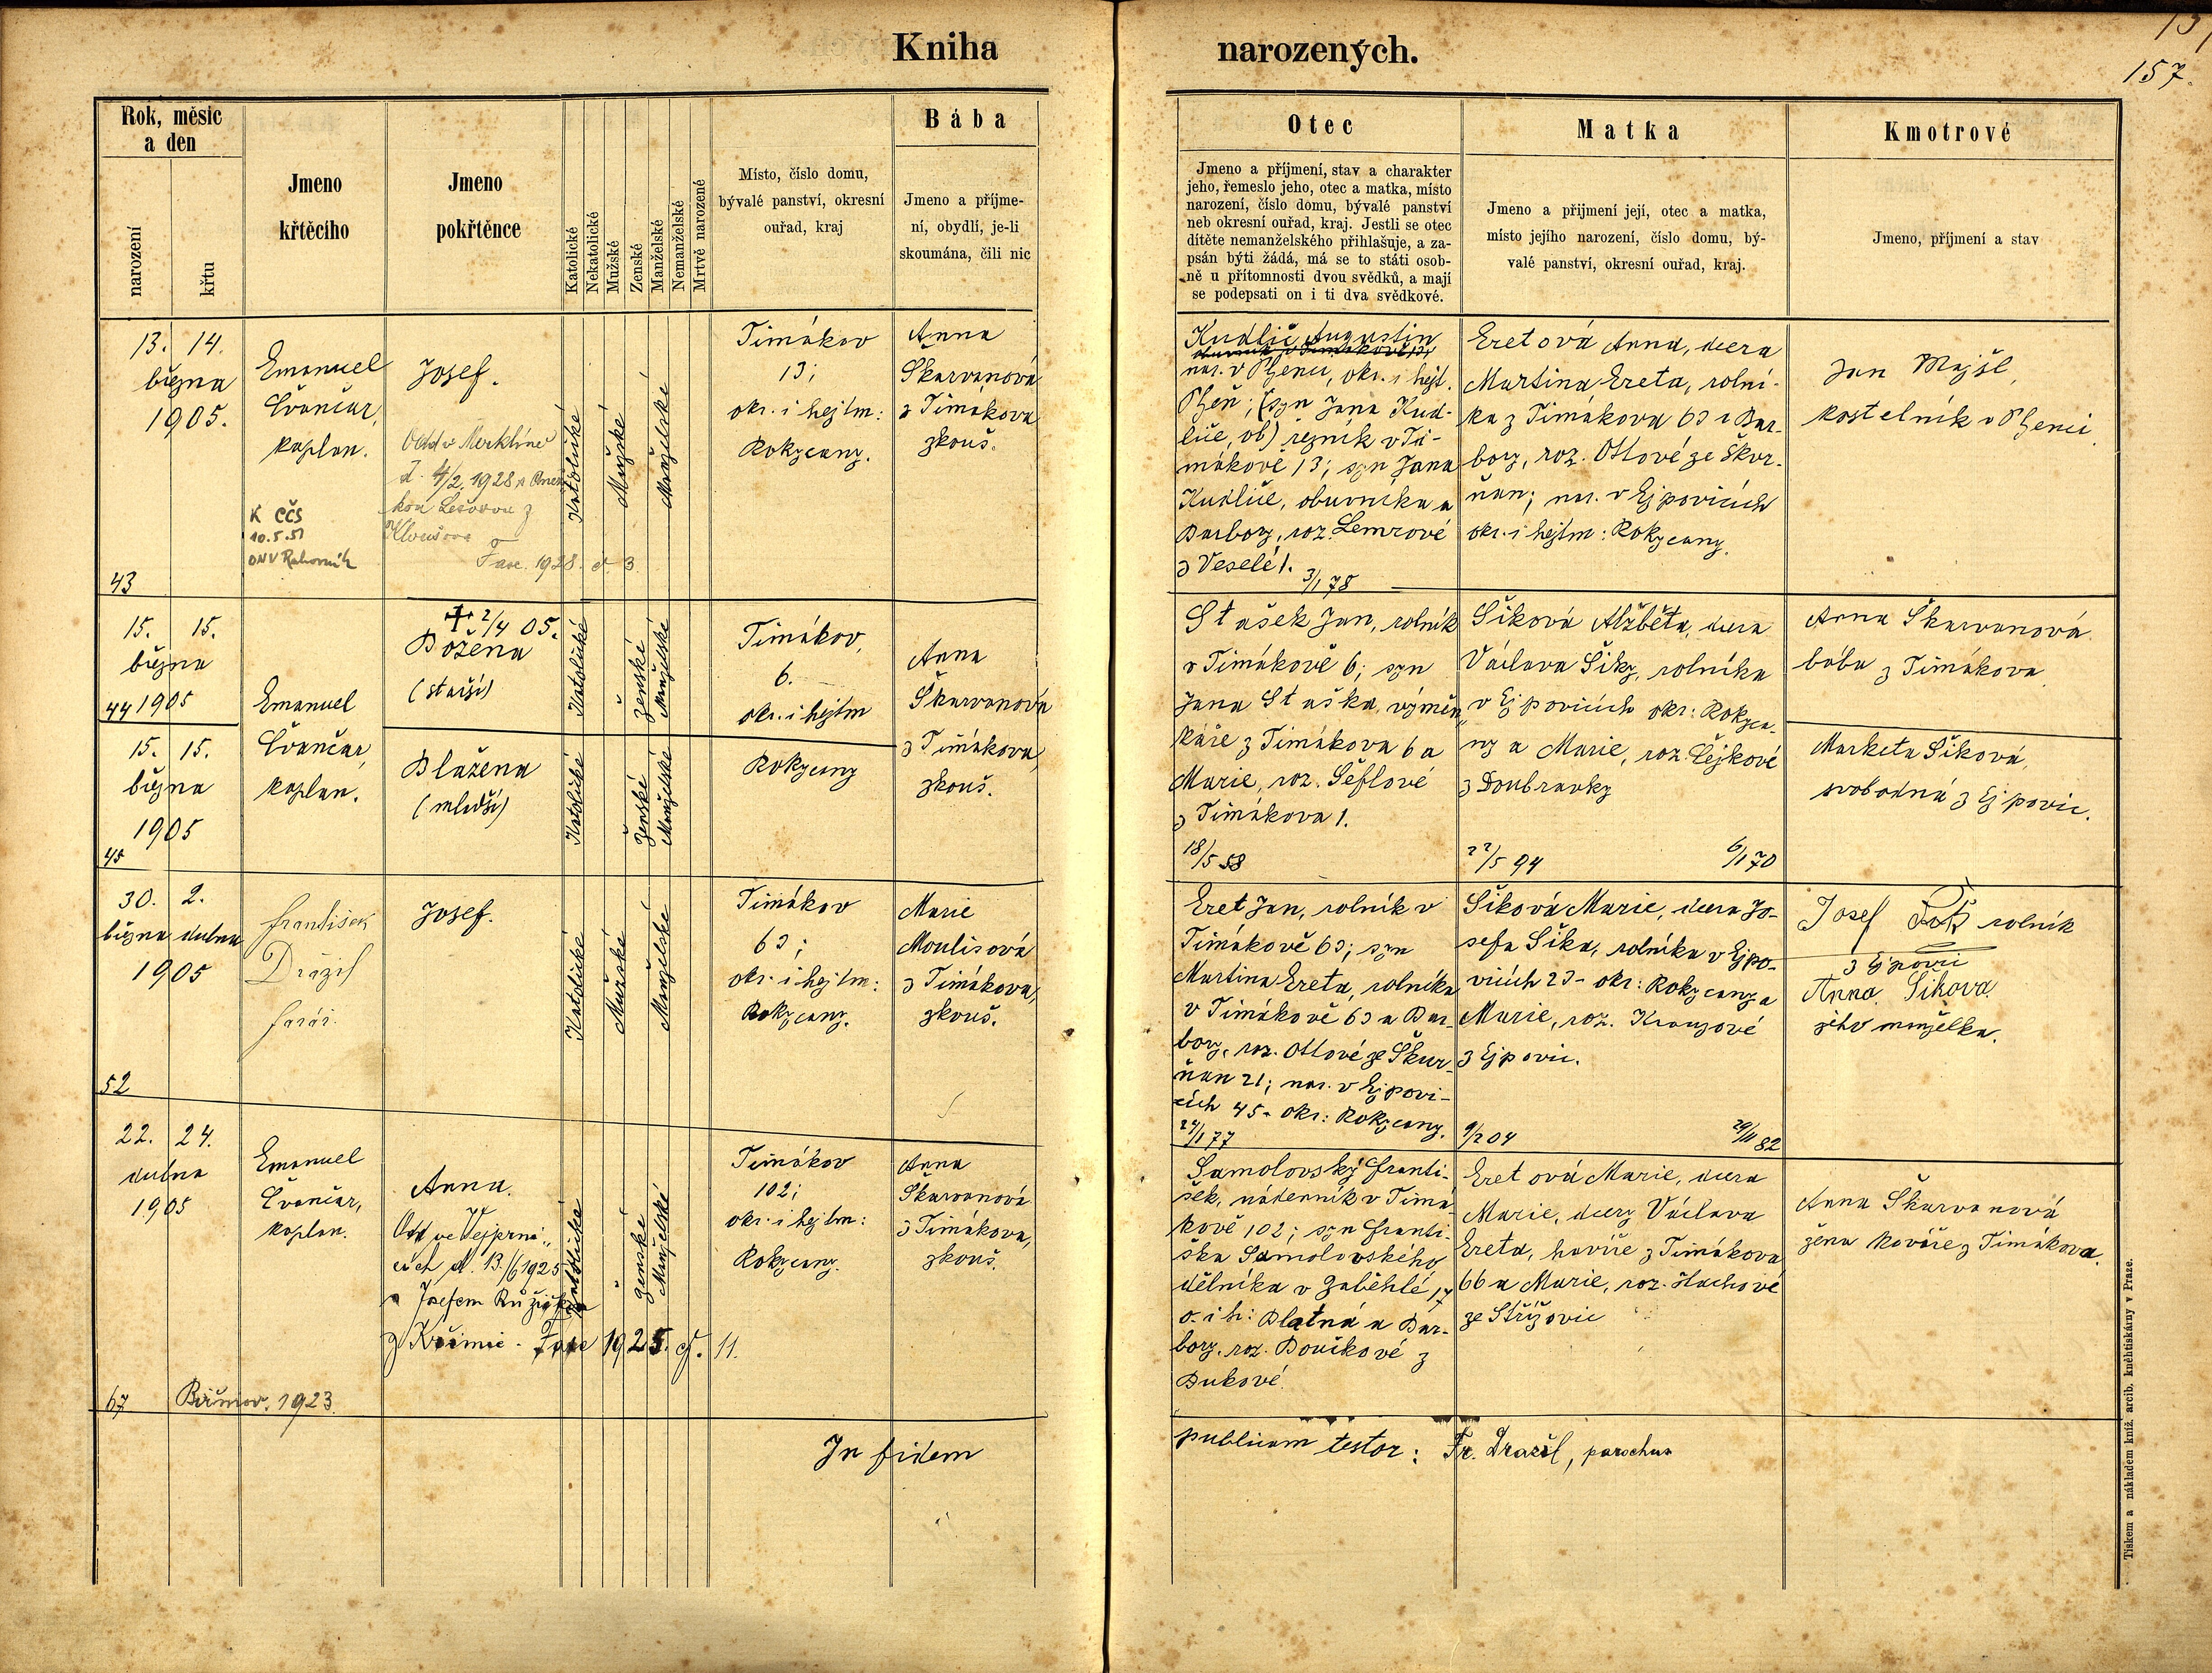 Kniha narozených.
157.
Rok, měsíc
a den
narození
křtu
Jmeno
křtěcího
Jmeno
pokřtěnce
Katolické
Nekatolické
Mužské
Ženské
Manželské
Nemanželské
Mrtvě narozené
Místo, číslo domu,
bývalé panství, okresní
ouřad, kraj
Bába
Jmeno a příjme-
ní, obydlí, je-li
skoumána, čili nic
Otec
Jmeno a příjmení, stav a charakter
jeho, řemeslo jeho, otec a matka, místo
narození, číslo domu, bývalé panství
neb okresní ouřad, kraj. Jestli se otec
dítěte nemanželského přihlašuje, a za-
psán býti žádá, má se to státi osob-
ně u přítomnosti dvou svědků, a mají
se podepsati on i ti dva svědkové.
Matka
Jmeno a přijmení její, otec a matka,
místo jejího narození, číslo domu, bý-
valé panství, okresní ouřad, kraj.
Kmotrové
Jmeno, příjmení a stav
13. 14.
března
1905.
43
Emanuel
Čvančar,
kaplan.
K CČS
10.5.51
ONV
Josef.
Odd v Merklíně
d. 4/2 1928 s
Fasc. 1928. č. 3.
Katolické
Mužské
Manželské
Timákov
13;
okr. i hejtm:
Rokycany.
Anna
Škarvanová
z Timákova
zkouš.
Kudlič Augustin
nar. v Plzenci, okr. i hejt.
Plzeň; (syn Jana Kud-
liče, ob) řezník v Ti-
mákově 13; syn Jana
Kudliče, obuvníka a
Barbory, roz. Lemrové
z Veselé 1.
3/1 78
Eretová Anna, dcera
Martina Ereta, rolní-
ka z Timákova 63 a Bar-
bory, roz. Ottové ze Škvr-
ňan; nar. v Ejpovicích
okr. i hejtm: Rokycany.
Jan Majšl,
kostelník v Plzenci
15. 15.
března
44 1905
Emanuel
Čvančar,
kaplan.
+ 2/4 05.
Božena
(starší)
Katolické
Ženské
Manželské
Timákov,
6.
okr. i hejtm
Rokycany
Anna
Škarvanová
z Timákova,
zkouš.
Stašek Jan, rolník
v Timákově 6; syn
Jana Staška, výměn-
káře z Timákova 6 a
Marie, roz. Šéflové
z Timákova 1.
18/5 58
Šiková Alžběta, dcera
Václava Šiky, rolníka
v Ejpovicích okr: Rokyca-
ny a Marie, roz. Čejkové
z Doubravky
22/5 94 6/1 70
Anna Škarvanová
bába z Timákova
15. 15.
března
1905
45
Blažena
(mladší)
Katolické
Ženské
Manželské
Marketa Šiková,
svobodná z Ejpovic.
30. 2.
března dubna
1905
52
František
Drážil
farář.
Josef.
Katolické
Mužské
Manželské
Timákov
63;
okr. i hejtm:
Rokycany.
Marie
Moulisová
z Timákova,
zkouš.
Eret Jan, rolník v
Timákově 63; syn
Martina Ereta, rolníka
v Timákově 63 a Bar-
bory, roz. Ottové ze Škvr-
ňan 21; nar. v Ejpovi-
cích 45. okr: Rokycany.
24/1 77
Šiková Marie, dcera Jo-
sefa Šika, rolníka v Ejpo-
vicích 23 - okr: Rokycany a
Marie, roz. Krauzové
z Ejpovic.
9/2 04 29/11 82
Josef rolník
z Ejpovic
Anna Šiková
jeho manželka.
22. 24.
dubna
1905
67
Emanuel
Čvančar,
kaplan.
Anna.
Odd ve Vejprni-
cích d. 13./6 1925
s Josefem Růžičk
z Křimic - Fasc 1925. č. 11.
Biřmov. 1923.
Katolické
Ženské
Manželské
Timákov
102;
okr. i hejtm:
Rokycany.
Anna
Škarvanová
z Timákova,
zkouš.
Samolovský Franti-
šek, nádenník v Timá-
kově 102; syn Franti-
ška Samolovského
dělníka v Záběhlé 17
o. i h: Blatná a Bar-
bory, roz. Boučkové z
Bukové.
Eretová Marie, dcera
Marie, dcery Václava
Ereta, havíře z Timákova
66 a Marie, roz. Hachové
ze Střížovic
Anna Škarvanová
žena kováře z Timákova.
In fidem publicam testor: Fr. Drážil, parochus
Tiskem a nákladem kníž. arcib. kněhtiskárny v Praze.